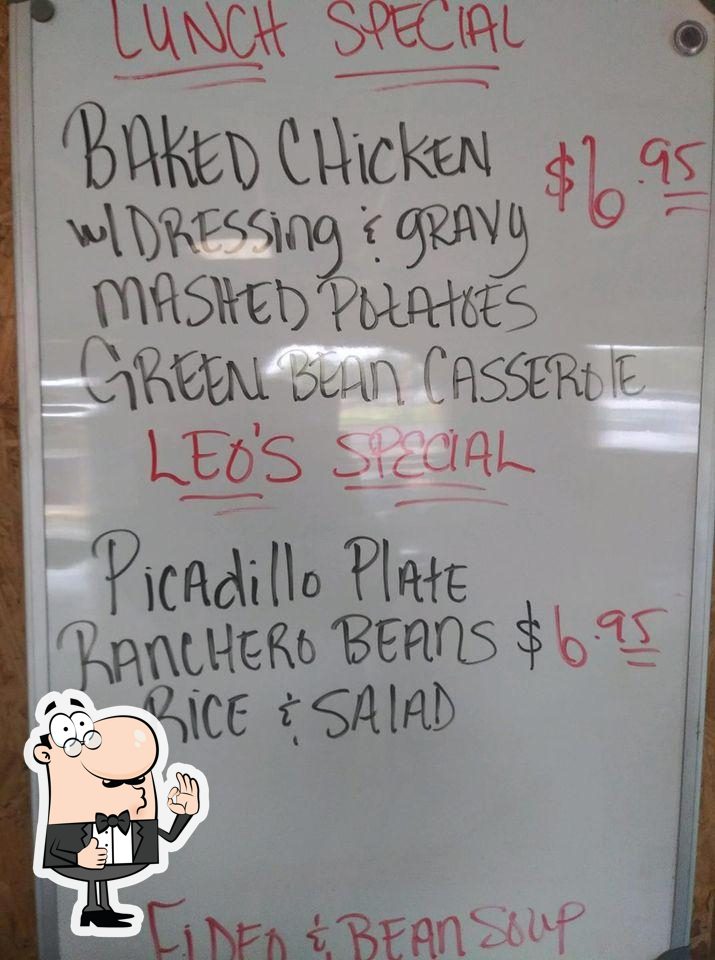 LUNCH SPECIAL
BAKED CHICKEN $6.95
w/ DRESSING & GRAVY
MASHED POTATOES
GREEN BEAN CASSEROLE
LEO'S SPECIAL
PICADILLO PLATE
RANCHERO BEANS $6.95
RICE & SALAD
FIDEO & BEAN SOUP